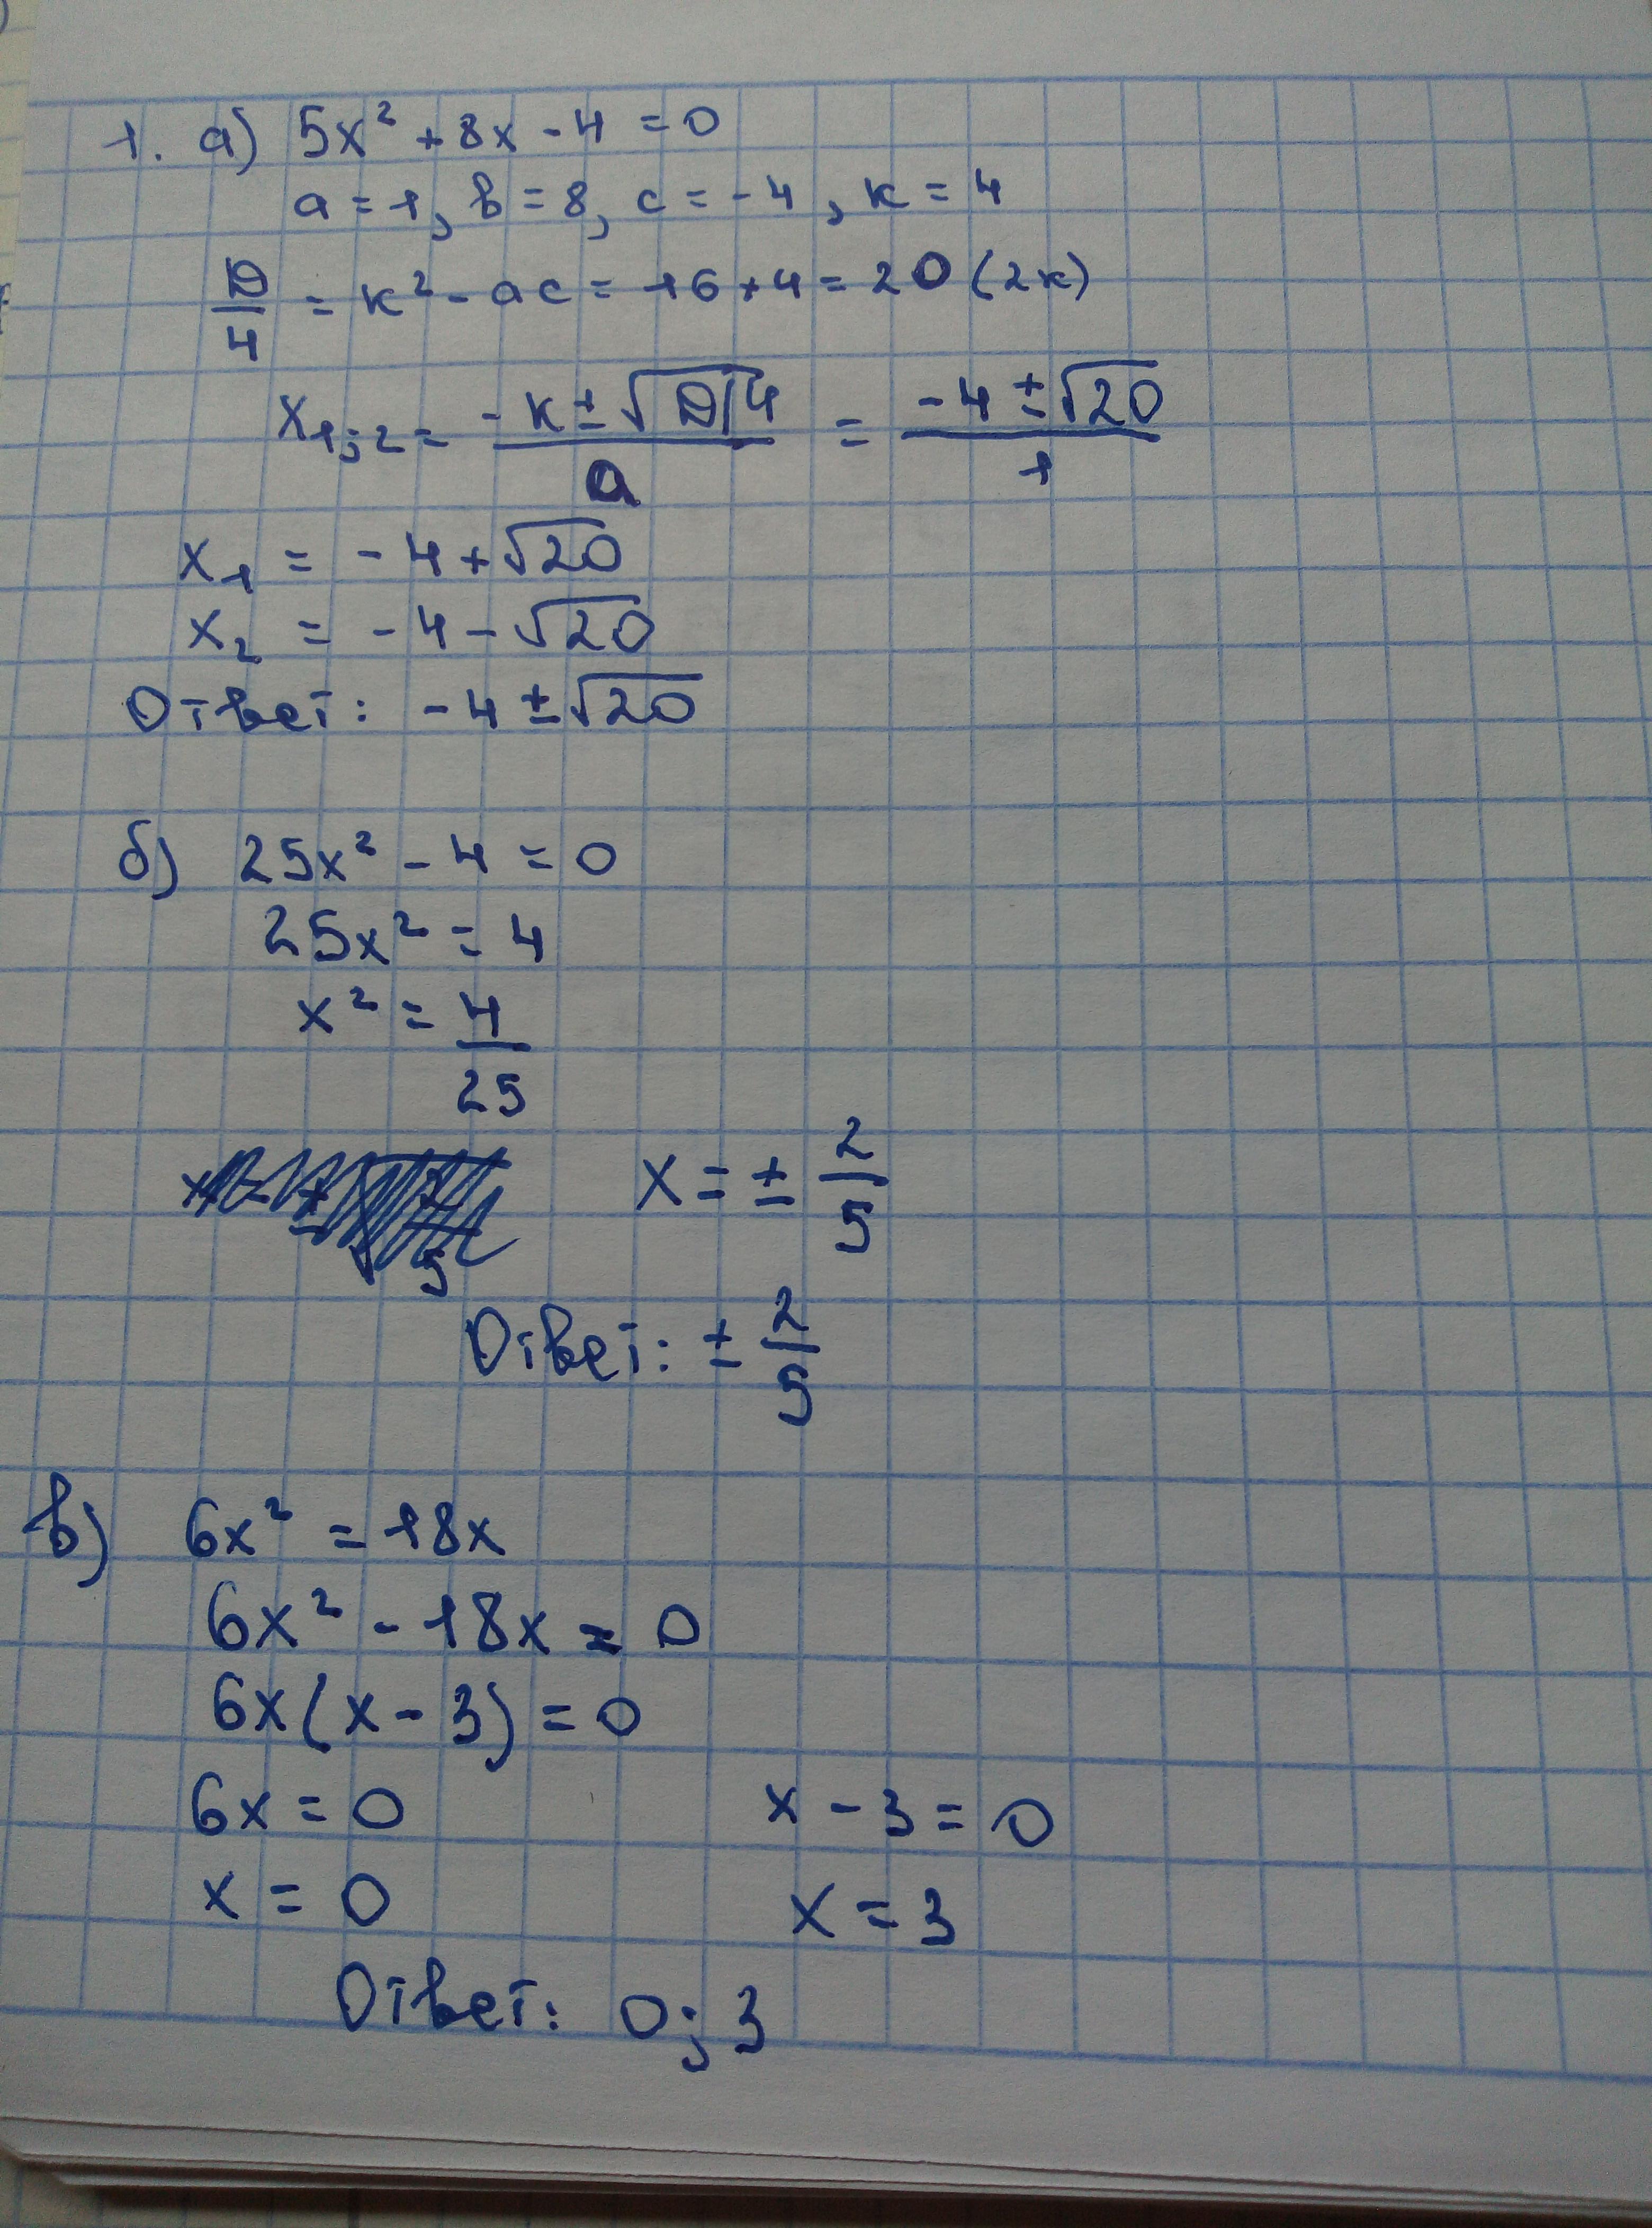 1. а) 5x² + 8x - 4 = 0
a = 1, b = 8, c = -4, к = 4
D/4 = к² - ac = 16 + 4 = 20 (2к)
x₁;₂ = (-к ± √D/4)/a = (-4 ± √20)/1
x₁ = -4 + √20
x₂ = -4 - √20
Ответ: -4 ± √20
б) 25x² - 4 = 0
25x² = 4
x² = 4/25
x = ± 2/5
Ответ: ± 2/5
в) 6x² = 18x
6x² - 18x = 0
6x(x - 3) = 0
6x = 0 x - 3 = 0
x = 0 x = 3
Ответ: 0; 3